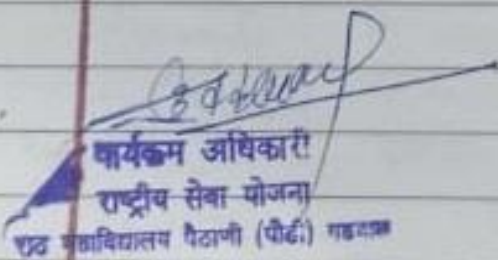 कार्यक्रम अधिकारी
राष्ट्रीय सेवा योजना
राठ महाविद्यालय पैठाणी (पौड़ी) गढ़वाल